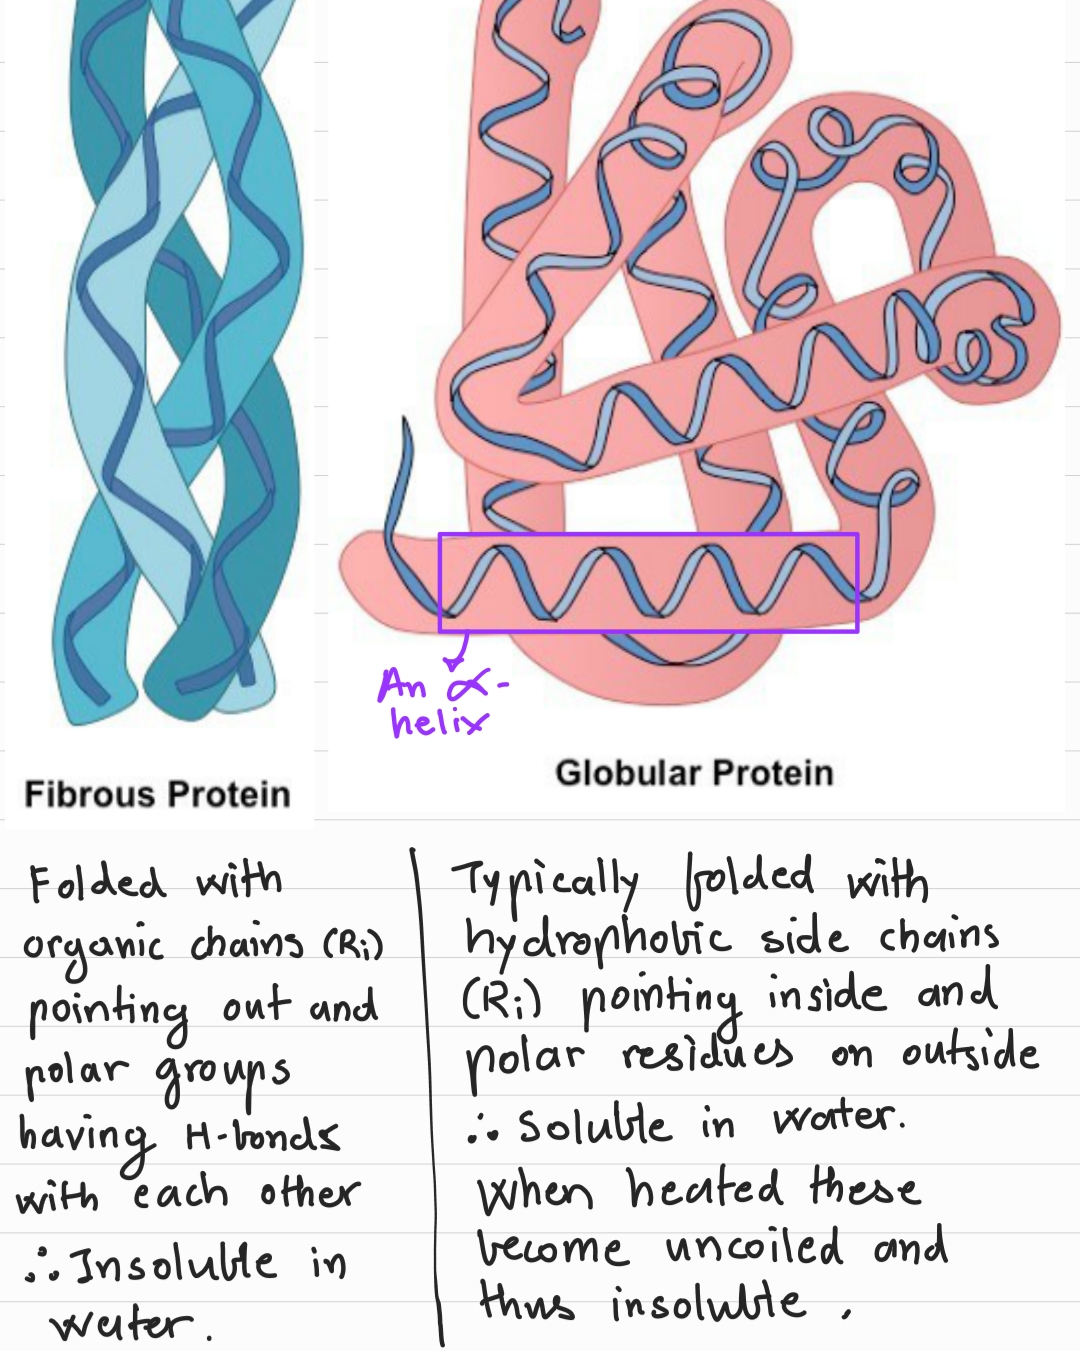 An α-
helix
Fibrous Protein
Globular Protein
Folded with
organic chains (Ri)
pointing out and
polar groups
having H-bonds
with each other
∴ Insoluble in
water.
Typically folded with
hydrophobic side chains
(Ri) pointing inside and
polar residues on outside
∴ Soluble in water.
When heated these
become uncoiled and
thus insoluble.